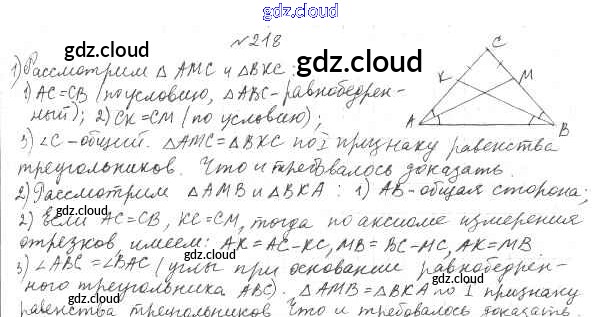 gdz.cloud
№218
gdz.cloud
gdz.cloud
1) Рассмотрим △ AMC и △ BKC:
1) AC=CB (по условию, △ABC - равнобедрен-
ный); 2) CK=CM (по условию);
C
K
M
A
B
3) ∠C - общий. △AMC=△BKC по I признаку равенства
треугольников. Что и требовалось доказать.
gdz.cloud
gdz.cloud
2) Рассмотрим △AMB и △BKA: 1) AB - общая сторона;
2) Если AC=CB, KC=CM, тогда по аксиоме измерения
gdz.cloud
gdz.cloud
отрезков имеем: AK=AC-KC, MB=BC-MC, AK=MB
3) ∠ABC=∠BAC (углы при основании равнобедрен-
gdz.cloud
gdz.cloud
ного треугольника ABC). △AMB=△BKA по I признаку
равенства треугольников Что и требовалось доказать.